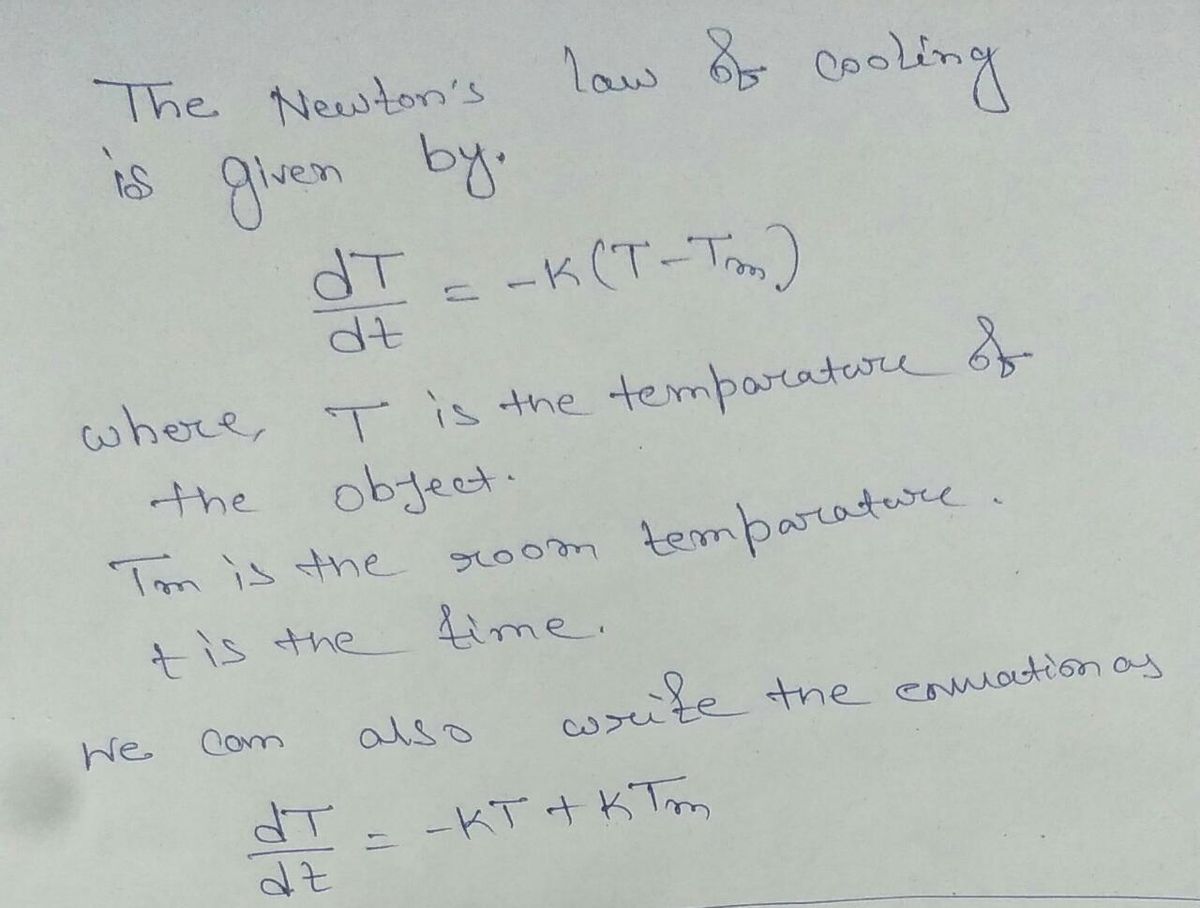 The Newton's law of cooling
is given by.
dT/dt = -K(T-Tm)
where, T is the temparature of
the object.
Tm is the room temparature.
t is the time.
We can also write the equation as
dT/dt = -KT + KTm